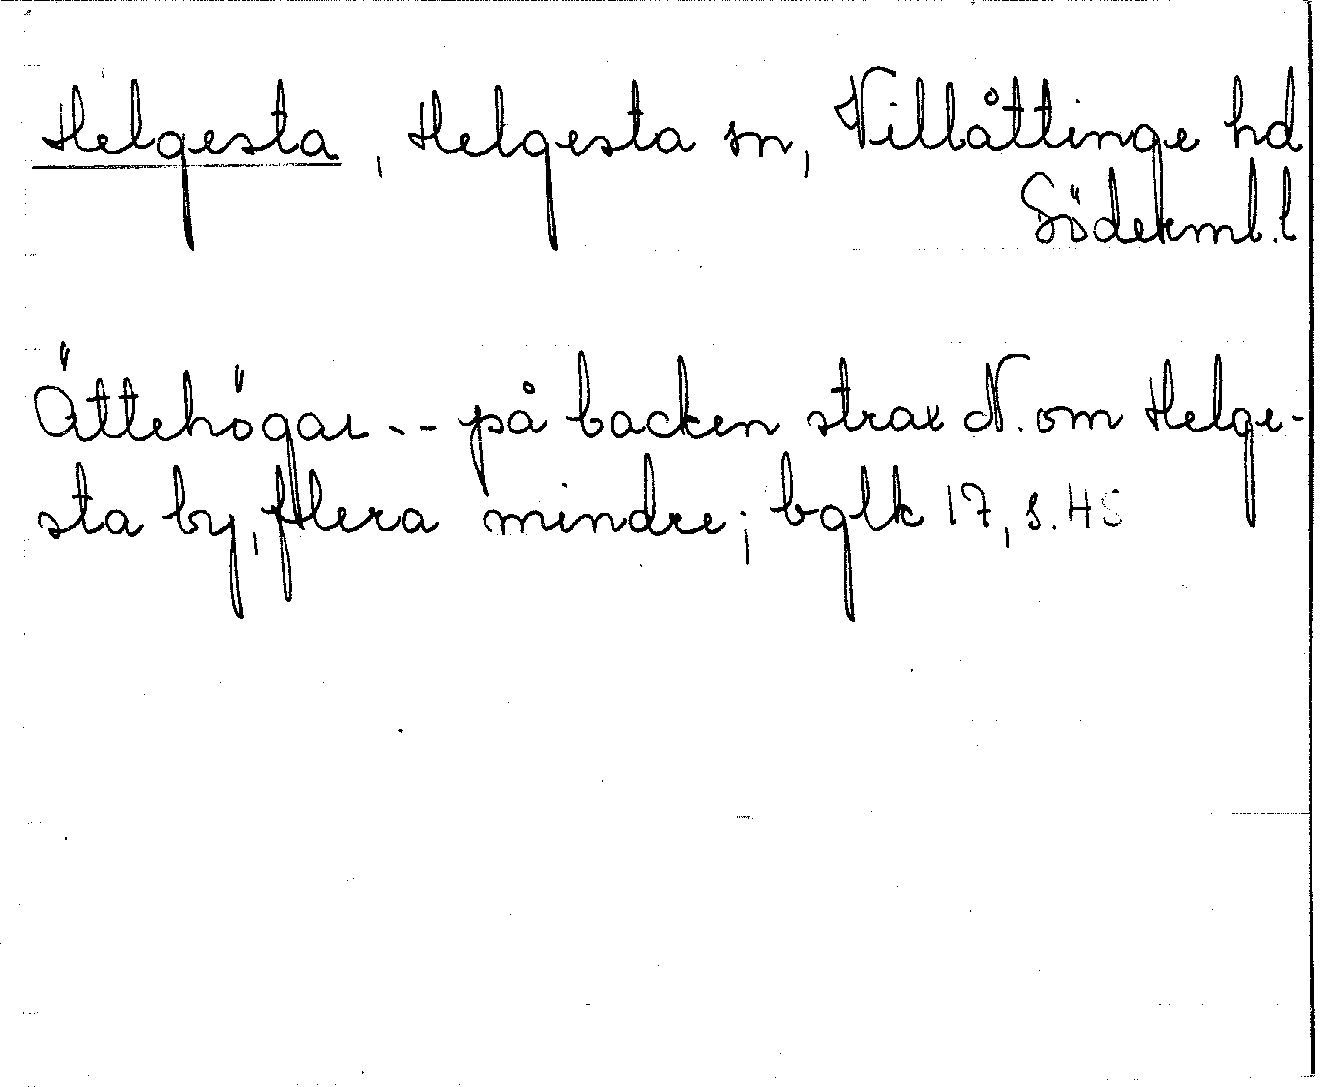 Helgesta, Helgesta sn, Villåttinge hd
Söderml.l
Ättehögar -- på backen strax N. om Helge-
sta by, flera mindre; bglk 17, s. 45